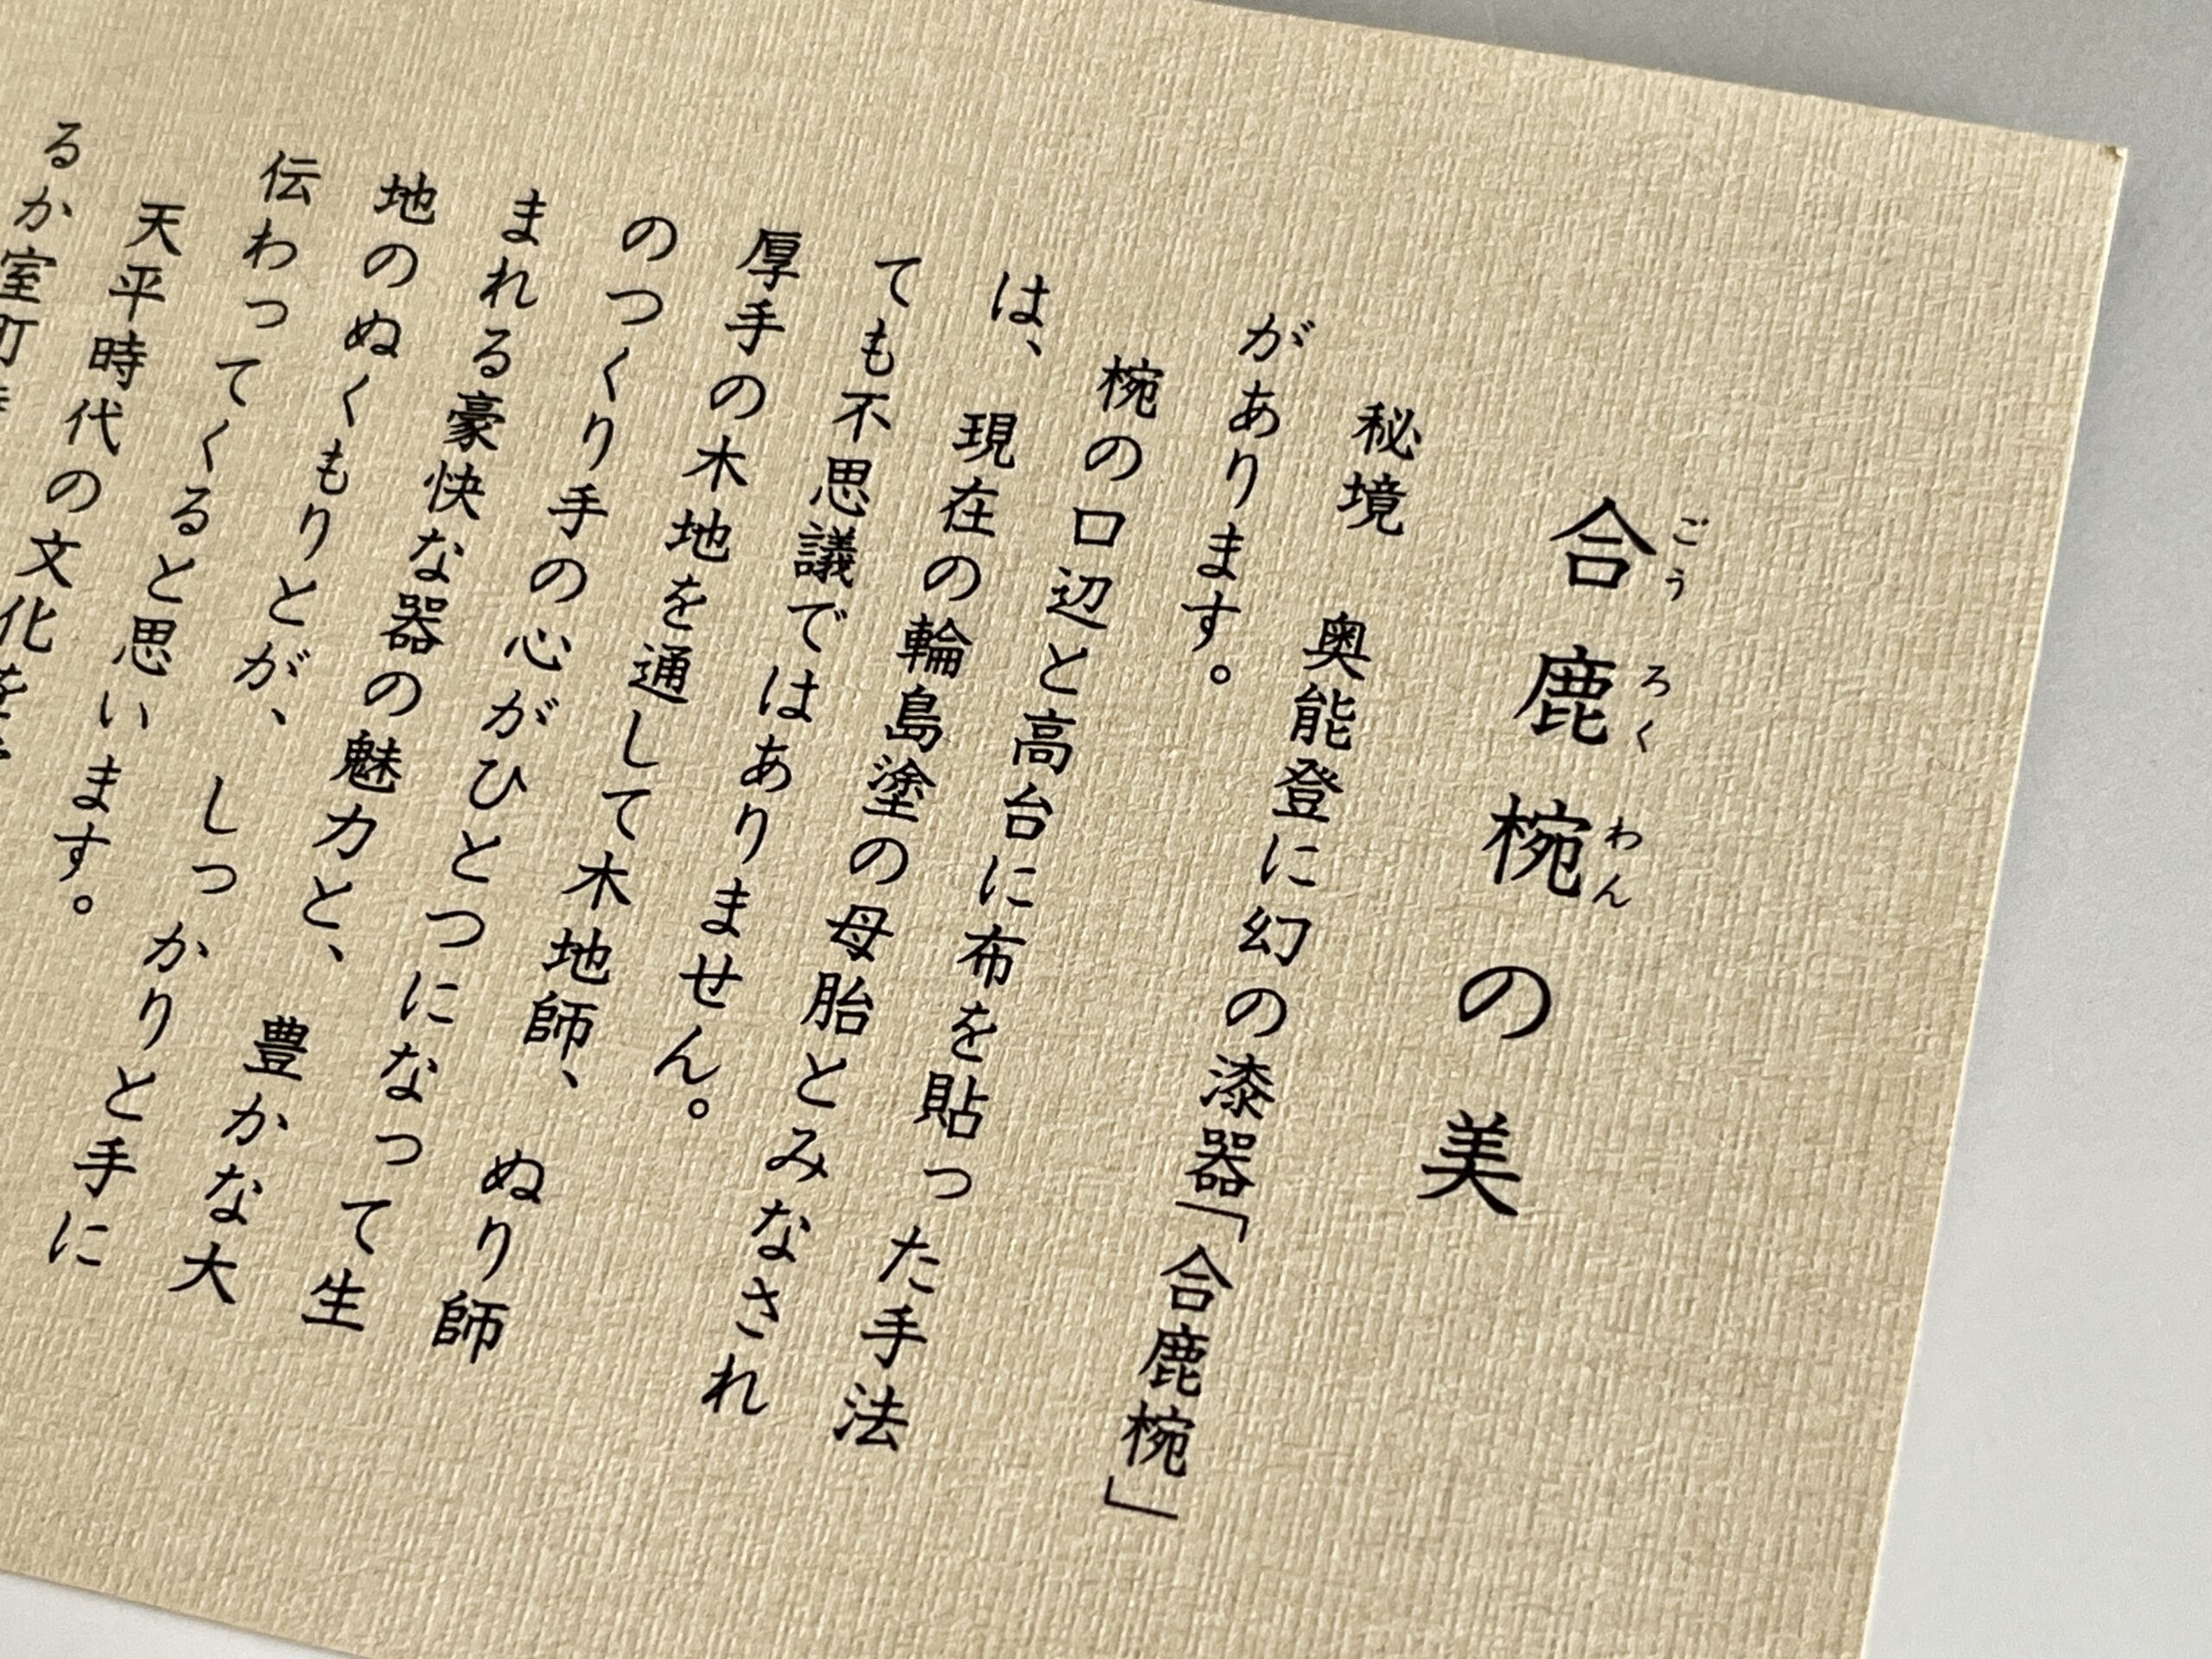 ごうろくわん
合鹿椀の美
秘境　奥能登に幻の漆器「合鹿椀」
があります。
椀の口辺と高台に布を貼った手法
は、現在の輪島塗の母胎とみなされ
ても不思議ではありません。
厚手の木地を通して木地師、ぬり師
のつくり手の心がひとつになって生
まれる豪快な器の魅力と、豊かな大
地のぬくもりとが、しっかりと手に
伝わってくると思います。
天平時代の文化を
るか室町